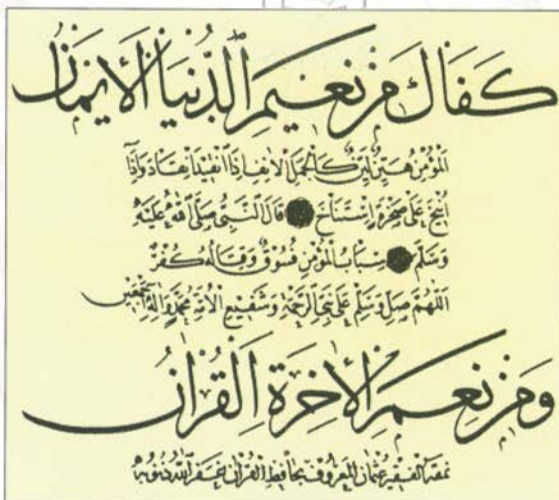 كَفَاكَ مِنْ نَعِيمِ الدُّنْيَا الْإِيمَانُ
الْمُؤْمِنُ هَيِّنٌ لَيِّنٌ كَالْجَمَلِ الْأَنِفِ إِذَا انْقِيدَ انْقَادَ وَإِذَا
أُنِيخَ عَلَى صَخْرَةٍ اسْتَنَاخَ قَالَ النَّبِيُّ صَلَّى اللهُ عَلَيْهِ
وَسَلَّمَ سِبَابُ الْمُؤْمِنِ فُسُوقٌ وَقِتَالُهُ كُفْرٌ
اللّٰهُمَّ صَلِّ وَسَلِّمْ عَلَى نَبِيِّ الرَّحْمَةِ وَشَفِيعِ الْأُمَّةِ مُحَمَّدٍ وَآلِهِ أَجْمَعِينَ
وَمِنْ نِعَمِ الْآخِرَةِ الْقُرْآنُ
نمقه الفقير عثمان المعروف بحافظ القرآن غفر الله ذنوبه